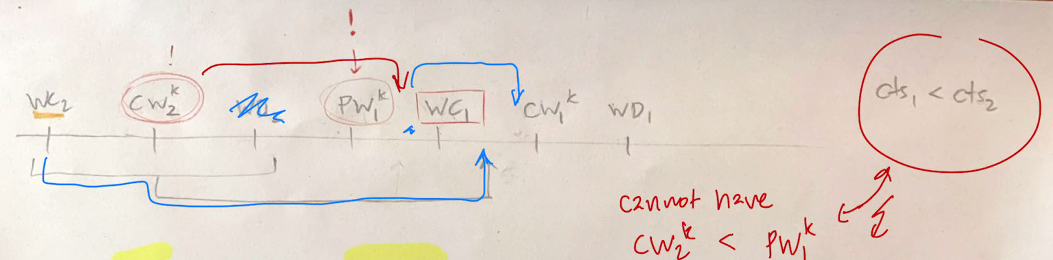 !
!
WC₂ CW₂ᵏ PW₁ᵏ WC₁ CW₁ᵏ WD₁
cts₁ < cts₂
cannot have
CW₂ᵏ < PW₁ᵏ